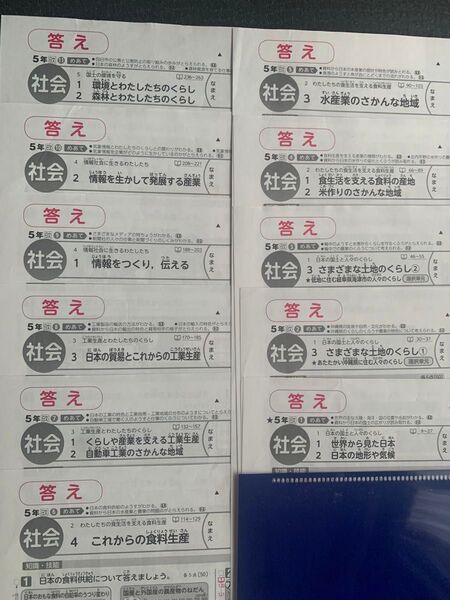 答え
5年 11 めあて
社会
5 国土の環境を守る
236~263
1 環境とわたしたちのくらし
2 森林とわたしたちのくらし
なまえ
答え
5年 10 めあて
社会
4 情報社会に生きるわたしたち
208~221
2 情報を生かして発展する産業
なまえ
答え
5年 9 めあて
社会
4 情報社会に生きるわたしたち
188~203
1 情報をつくり，伝える
なまえ
答え
5年 8 めあて
社会
3 工業生産とわたしたちのくらし
170~185
3 日本の貿易とこれからの工業生産
なまえ
答え
5年 7 めあて
社会
3 工業生産とわたしたちのくらし
132~157
1 くらしや産業を支える工業生産
2 自動車工業のさかんな地域
なまえ
答え
5年 6 めあて
社会
2 わたしたちの食生活を支える食料生産
114~129
4 これからの食料生産
なまえ
知識・技能
1 日本の食料供給について答えましょう。
各5点(50)
日本のおもな食料の自給率のうつり変わり
国産と外国産の農産物のねだん
答え
5年 5 めあて
社会
2 わたしたちの食生活を支える食料生産
90~105
3 水産業のさかんな地域
なまえ
答え
5年 4 めあて
社会
2 わたしたちの食生活を支える食料生産
66~89
1 食生活を支える食料の産地
2 米作りのさかんな地域
なまえ
答え
5年 3 めあて
社会
1 日本の国土と人々のくらし
46~55
3 さまざまな土地のくらし②
★低地に住む岐阜県海津市の人々のくらし 選択単元
なまえ
答え
5年 2 めあて
社会
1 日本の国土と人々のくらし
30~37
3 さまざまな土地のくらし①
★あたたかい沖縄県に住む人々のくらし 選択単元
なまえ
答え
★5年 1 めあて
社会
1 日本の国土と人々のくらし
8~27
1 世界から見た日本
2 日本の地形や気候
なまえ
知識・技能